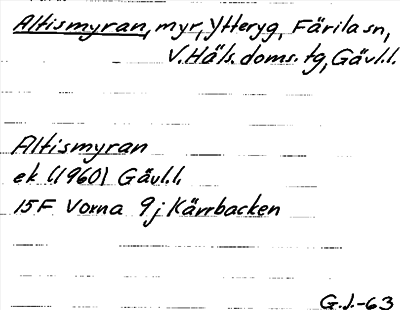 Altismyran, myr, Ytteryg, Färila sn,
V.Häls. doms. tg, Gävl.l.
Altismyran
ek (1960) Gävl.l.
15F Voxna 9j Kärrbacken
G.J.-63